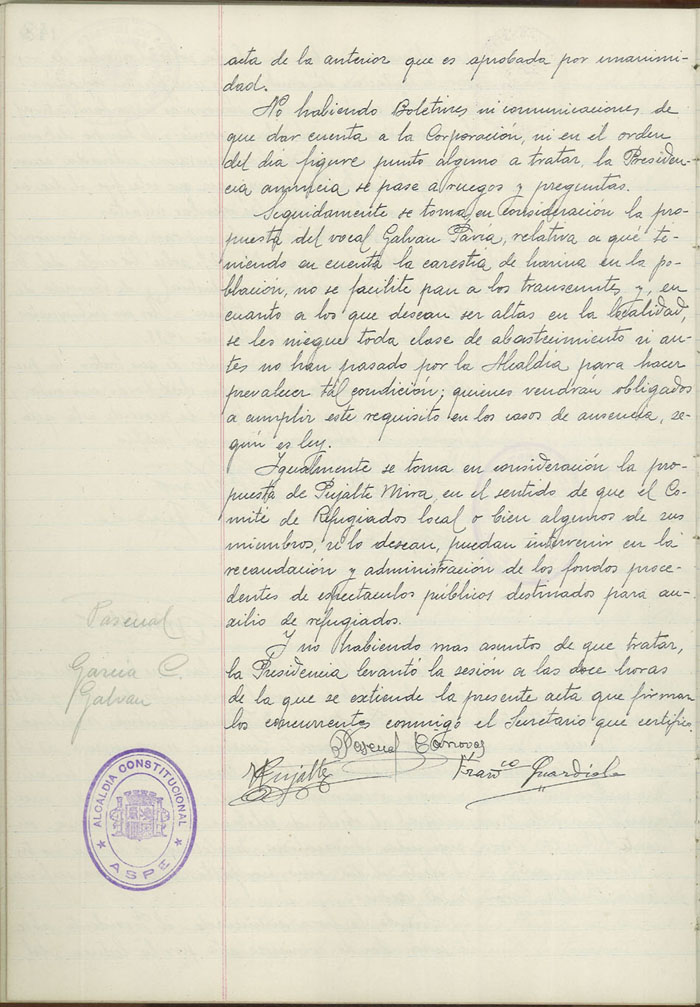 acta de la anterior que es aprobada por unanimi-
dad.
No habiendo Boletines ni comunicaciones de
que dar cuenta a la Corporación, ni en el orden
del día figure punto alguno a tratar, la Presiden-
cia anuncia se pase a ruegos y preguntas.
Seguidamente se toma en consideración la pro-
puesta del vocal Galvan Pavia, relativa a qué te-
niendo en cuenta la carestia de harina en la po-
blación, no se facilite pan a los transeuntes y, en
cuanto a los que desean ser altas en la localidad,
se les niegue toda clase de abastecimiento si an-
tes no han pasado por la Alcaldía para hacer
prevalecer tal condición; quienes vendran obligados
a cumplir este requisito en los casos de ausencia, se-
gún es ley.
Igualmente se toma en consideración la pro-
puesta de Pujalte Mira, en el sentido de que el Co-
mité de Refugiados local o bien algunos de sus
miembros, si lo desean, puedan intervenir en la
recaudación y administración de los fondos proce-
dentes de espectaculos públicos destinados para au-
xilio de refugiados.
Y no habiendo mas asuntos de que tratar,
la Presidencia levantó la sesión a las doce horas
de la que se extiende la presente acta que firman
los concurrentes conmigo el Secretario que certifico.
Pascual Cánovas
Pujalte
Franco Guardiola
Pascual
García C.
Galvan
ALCALDIA CONSTITUCIONAL
ASPE